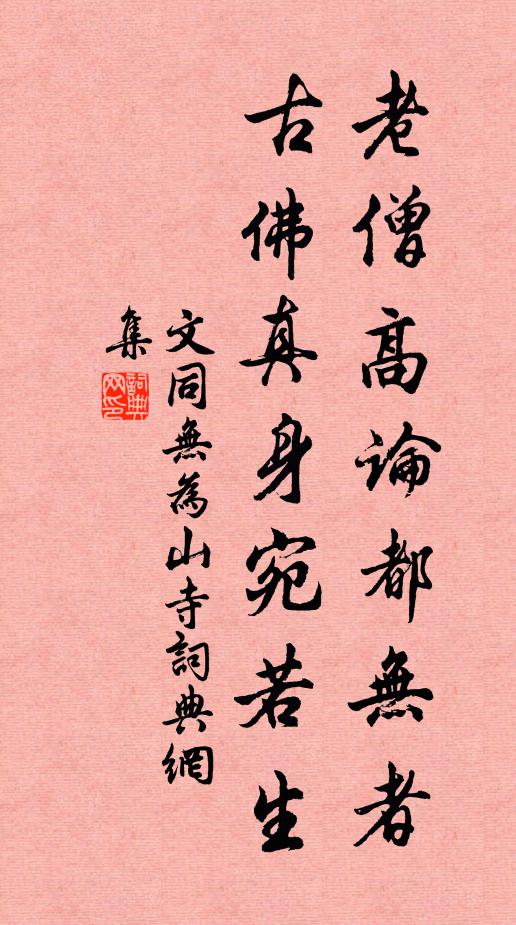 老僧高論都無者
古佛真身宛若生
文同無為山寺詞典網
集
詞典網印